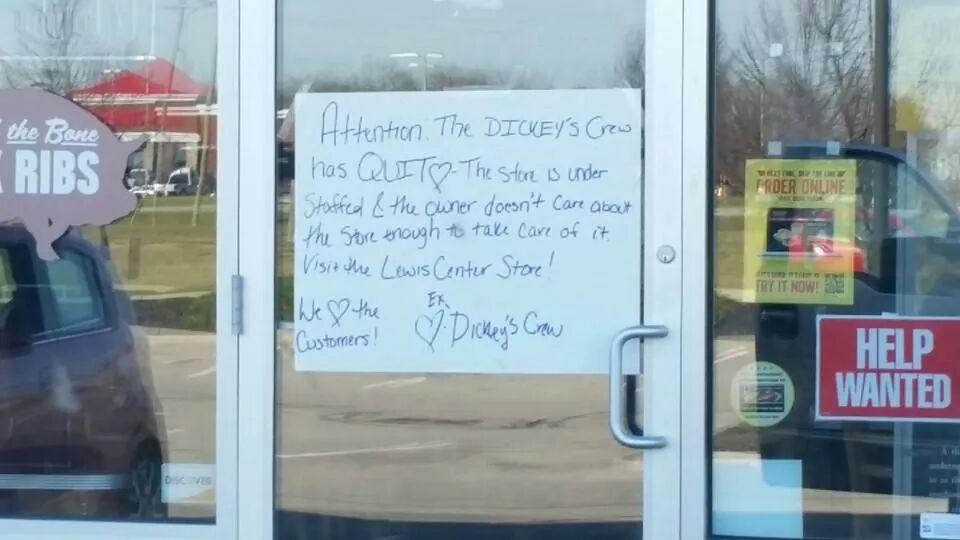 the Bone
RIBS
Attention. The DICKEY'S Crew
has QUIT♡- The store is under
Staffed & the owner doesn't care about
the Store enough to take care of it.
Visit the Lewis Center Store!
We ♡ the
Customers!
Ex
♡- Dickey's Crew
DISCOVER
ORDER ONLINE
TRY IT NOW!
HELP
WANTED